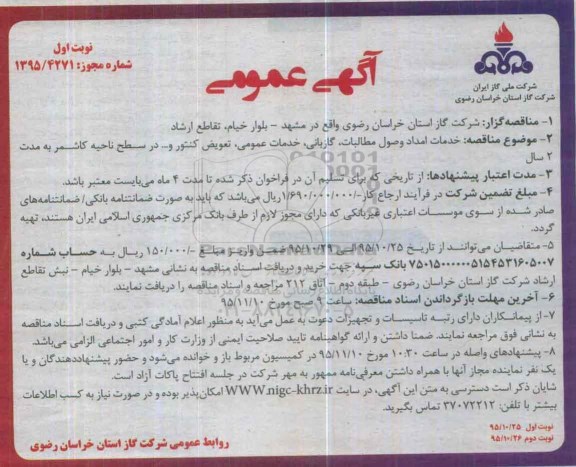 نوبت اول
شماره مجوز: ۱۳۹۵/۴۲۷۱
آگهی عمومی
شرکت ملی گاز ایران
شرکت گاز استان خراسان رضوی
۱- مناقصه‌گزار: شرکت گاز استان خراسان رضوی واقع در مشهد - بلوار خیام، تقاطع ارشاد
۲- موضوع مناقصه: خدمات امداد وصول مطالبات، گازبانی، خدمات عمومی، تعویض کنتور و... در سطح ناحیه کاشمر به مدت
۲ سال
۳- مدت اعتبار پیشنهادها: از تاریخی که برای تسلیم آن در فراخوان ذکر شده تا مدت ۴ ماه می‌بایست معتبر باشد.
۴- مبلغ تضمین شرکت در فرآیند ارجاع کار -/۱/۶۹۰/۰۰۰/۰۰۰ریال می‌باشد که باید به صورت ضمانتنامه بانکی/ضمانتنامه‌های
صادر شده از سوی موسسات اعتباری غیربانکی که دارای مجوز لازم از طرف بانک مرکزی جمهوری اسلامی ایران هستند، تهیه
گردد.
۵- متقاضیان می‌توانند از تاریخ ۹۵/۱۰/۲۵ الی ۹۵/۱۰/۲۹ ضمن واریز مبلغ -/۱۵۰/۰۰۰ ریال به حساب شماره
۷۵۰۱۵۰۰۰۰۰۰۵۱۵۴۵۳۱۶۰۵۰۰۷ بانک سپه جهت خرید و دریافت اسناد مناقصه به نشانی مشهد - بلوار خیام - نبش تقاطع
ارشاد شرکت گاز استان خراسان رضوی - طبقه دوم - اتاق ۲۱۲ مراجعه و اسناد مناقصه را دریافت نمایند.
۶- آخرین مهلت بازگرداندن اسناد مناقصه: ساعت ۹ صبح مورخ ۹۵/۱۱/۱۰
۷- از پیمانکاران دارای رتبه تاسیسات و تجهیزات دعوت به عمل می‌آید به منظور اعلام آمادگی کتبی و دریافت اسناد مناقصه
به نشانی فوق مراجعه نمایند. ضمنا داشتن و ارائه گواهینامه تایید صلاحیت ایمنی از وزارت کار و امور اجتماعی الزامی می‌باشد.
۸- پیشنهادهای واصله در ساعت ۱۰:۳۰ مورخ ۹۵/۱۱/۱۰ در کمیسیون مربوط باز و خوانده می‌شود و حضور پیشنهاددهندگان و یا
یک نفر نماینده مجاز آنها با همراه داشتن معرفی‌نامه ممهور به مهر شرکت در جلسه افتتاح پاکات آزاد است.
شایان ذکر است دسترسی به متن این آگهی، در سایت WWW.nigc-khrz.ir امکان‌پذیر بوده و در صورت نیاز به کسب اطلاعات
بیشتر با تلفن: ۳۷۰۷۲۲۱۲ تماس بگیرید.
نوبت اول ۹۵/۱۰/۲۵
نوبت دوم ۹۵/۱۰/۲۶
روابط عمومی شرکت گاز استان خراسان رضوی